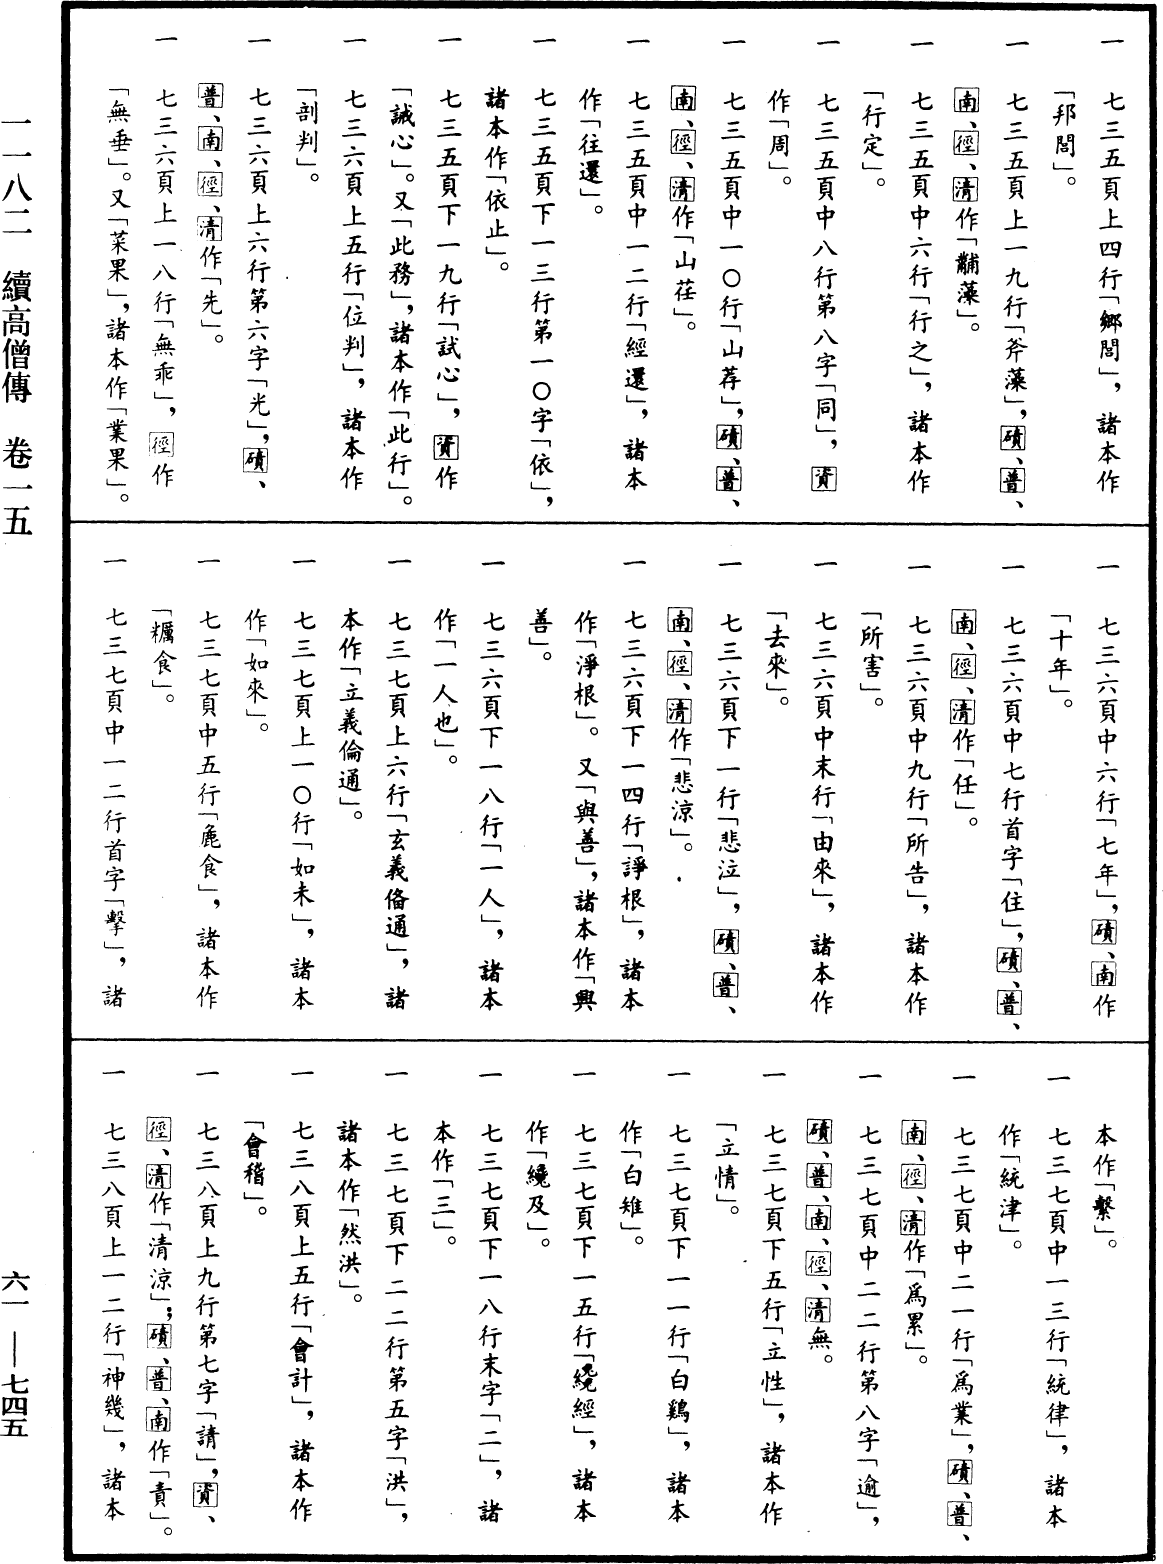 一　七三五頁上四行「鄉閭」，諸本作
「邦閭」。
一　七三五頁上一九行「斧藻」，磧、普、
南、徑、清作「黼藻」。
一　七三五頁中六行「行之」，諸本作
「行定」。
一　七三五頁中八行第八字「同」，資
作「周」。
一　七三五頁中一〇行「山荐」，磧、普、
南、徑、清作「山荏」。
一　七三五頁中一二行「經還」，諸本
作「往還」。
一　七三五頁下一三行第一〇字「依」，
諸本作「依止」。
一　七三五頁下一九行「試心」，資作
「誠心」。又「此務」，諸本作「此行」。
一　七三六頁上五行「位判」，諸本作
「剖判」。
一　七三六頁上六行第六字「光」，磧、
普、南、徑、清作「先」。
一　七三六頁上一八行「無乖」，徑作
「無垂」。又「菜果」，諸本作「業果」。
一　七三六頁中六行「七年」，磧、南作
「十年」。
一　七三六頁中七行首字「住」，磧、普、
南、徑、清作「任」。
一　七三六頁中九行「所告」，諸本作
「所害」。
一　七三六頁中末行「由來」，諸本作
「去來」。
一　七三六頁下一行「悲泣」，磧、普、
南、徑、清作「悲涼」。
一　七三六頁下一四行「諍根」，諸本
作「淨根」。又「與善」，諸本作「興
善」。
一　七三六頁下一八行「一人」，諸本
作「一人也」。
一　七三七頁上六行「玄義俻通」，諸
本作「立義倫通」。
一　七三七頁上一〇行「如未」，諸本
作「如來」。
一　七三七頁中五行「麁食」，諸本作
「糲食」。
一　七三七頁中一二行首字「擊」，諸
本作「繫」。
一　七三七頁中一三行「統律」，諸本
作「統津」。
一　七三七頁中二一行「爲業」，磧、普、
南、徑、清作「爲累」。
一　七三七頁中二二行第八字「逾」，
磧、普、南、徑、清無。
一　七三七頁下五行「立性」，諸本作
「立情」。
一　七三七頁下一一行「白鷄」，諸本
作「白雉」。
一　七三七頁下一五行「纔經」，諸本
作「纔及」。
一　七三七頁下一八行末字「二」，諸
本作「三」。
一　七三七頁下二二行第五字「洪」，
諸本作「然洪」。
一　七三八頁上五行「會計」，諸本作
「會稽」。
一　七三八頁上九行第七字「請」，資、
徑、清作「清涼」；磧、普、南作「責」。
一　七三八頁上一二行「神幾」，諸本
一一八二　續高僧傳　卷一五
六一——七四五